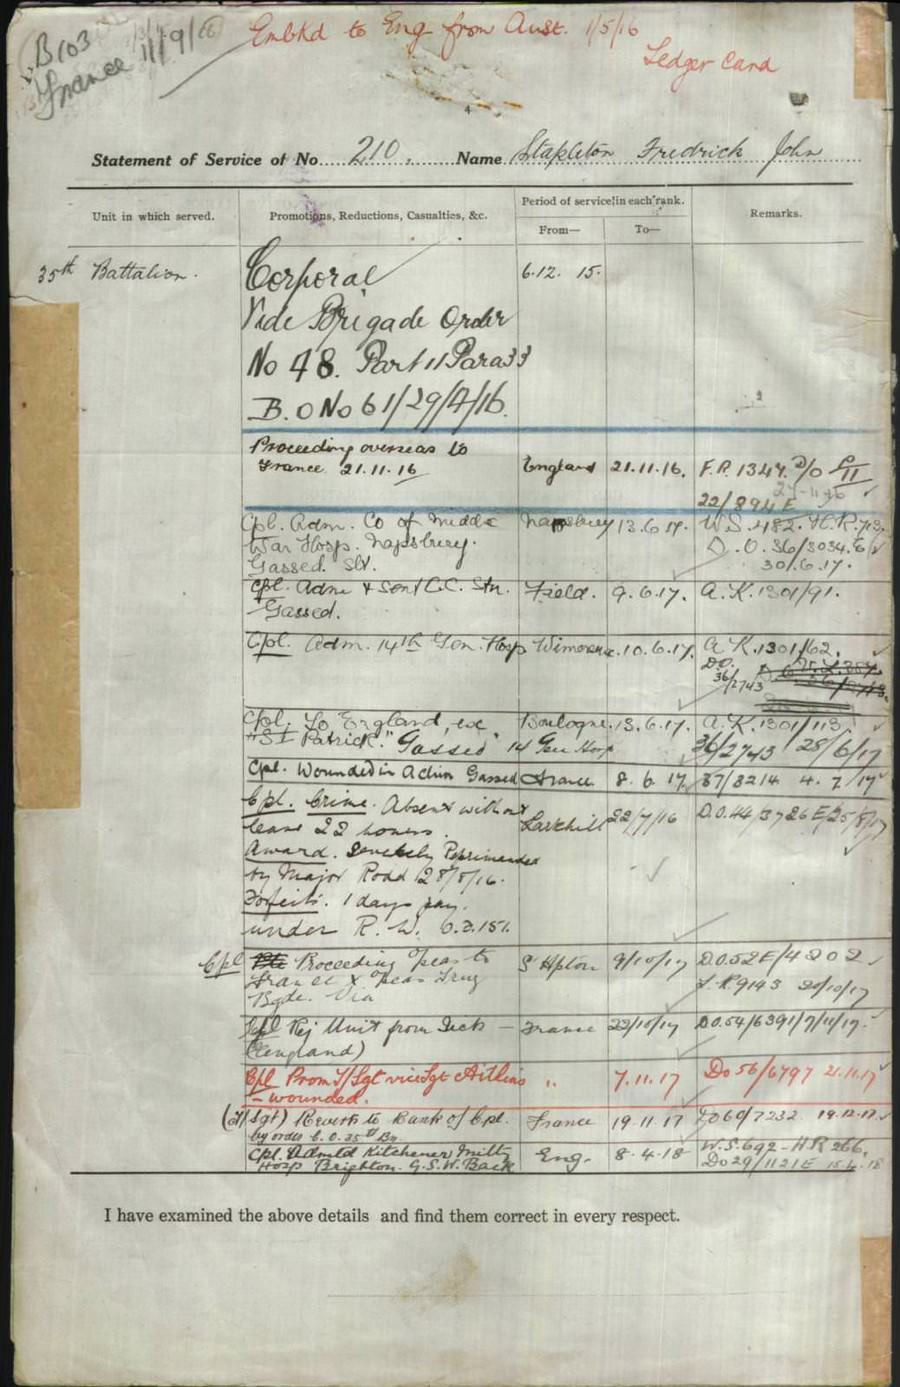 B103
France 11/9/16
Embkd to Eng from Aust. 1/5/16
Ledger Card
4
Statement of Service of No. 210. Name Stapleton Fredrick John
Unit in which served. Promotions, Reductions, Casualties, &c. Period of service in each rank. Remarks.
From— To—
35th Battalion. Corporal 6.12.15.
Vide Brigade Order
No 48. Part 11 Para 33
B.O No 61/29/4/16.
Proceeding overseas to
France 21.11.16 England 21.11.16. F.R. 1347. D/O
22/894 E
Cpl. Adm. Co of Middx Napsbury 13.6.17. W.S. 482. H.R. 713.
War Hosp. Napsbury. D.O. 36/3034.E
Gassed. Slt. 30/6.17.
Cpl. Adm & Sent C.C. Stn. Field. 9.6.17. A.K. 1301/91.
Gassed.
Cpl. Adm. 14th Gen. Hosp Wimereux. 10.6.17. A.K. 1301/62.
DO.
36/2743
Cpl. To England, ex Boulogne. 13.6.17. A.K. 1301/113.
"St Patrick." "Gassed" 14 Gen Hosp 36/2743 28/6/17
Cpl. Wounded in Action Gassed France 8.6.17 37/3214 4.7/17
Cpl. Crime. Absent without Larkhill 22/7/16 D.O. 44/3726 E/25/8/17
leave 22 hours.
Award. Severely Reprimanded
by Major Rodd 28/8/16.
Forfeits. 1 days pay.
under R.W.
Cpl Proceeding O'seas to S'Hpton 9/10/17 D.O. 52E/4202
France O'seas Trng
Bgde. Via 20/10/17
Cpl Rej Unit from Sick — France 22/10/17 D.O. 54/6391/7/11/17.
(England)
Cpl Prom T/Sgt vice Sgt Aitkins " 7.11.17 Do 56/6797 21.11.17
- wounded.
(T/Sgt) Reverts to Rank of Cpl. France 19.11.17 DO60/7232 19.12.17
by order C.O. 35th Bn.
Cpl. Admtd Kitchener Milty Eng. 8.4.18 W.S. 692 - H.R 266.
Hosp Brighton. G.S.W. Back Do 29/1121E 15.4.18
I have examined the above details and find them correct in every respect.